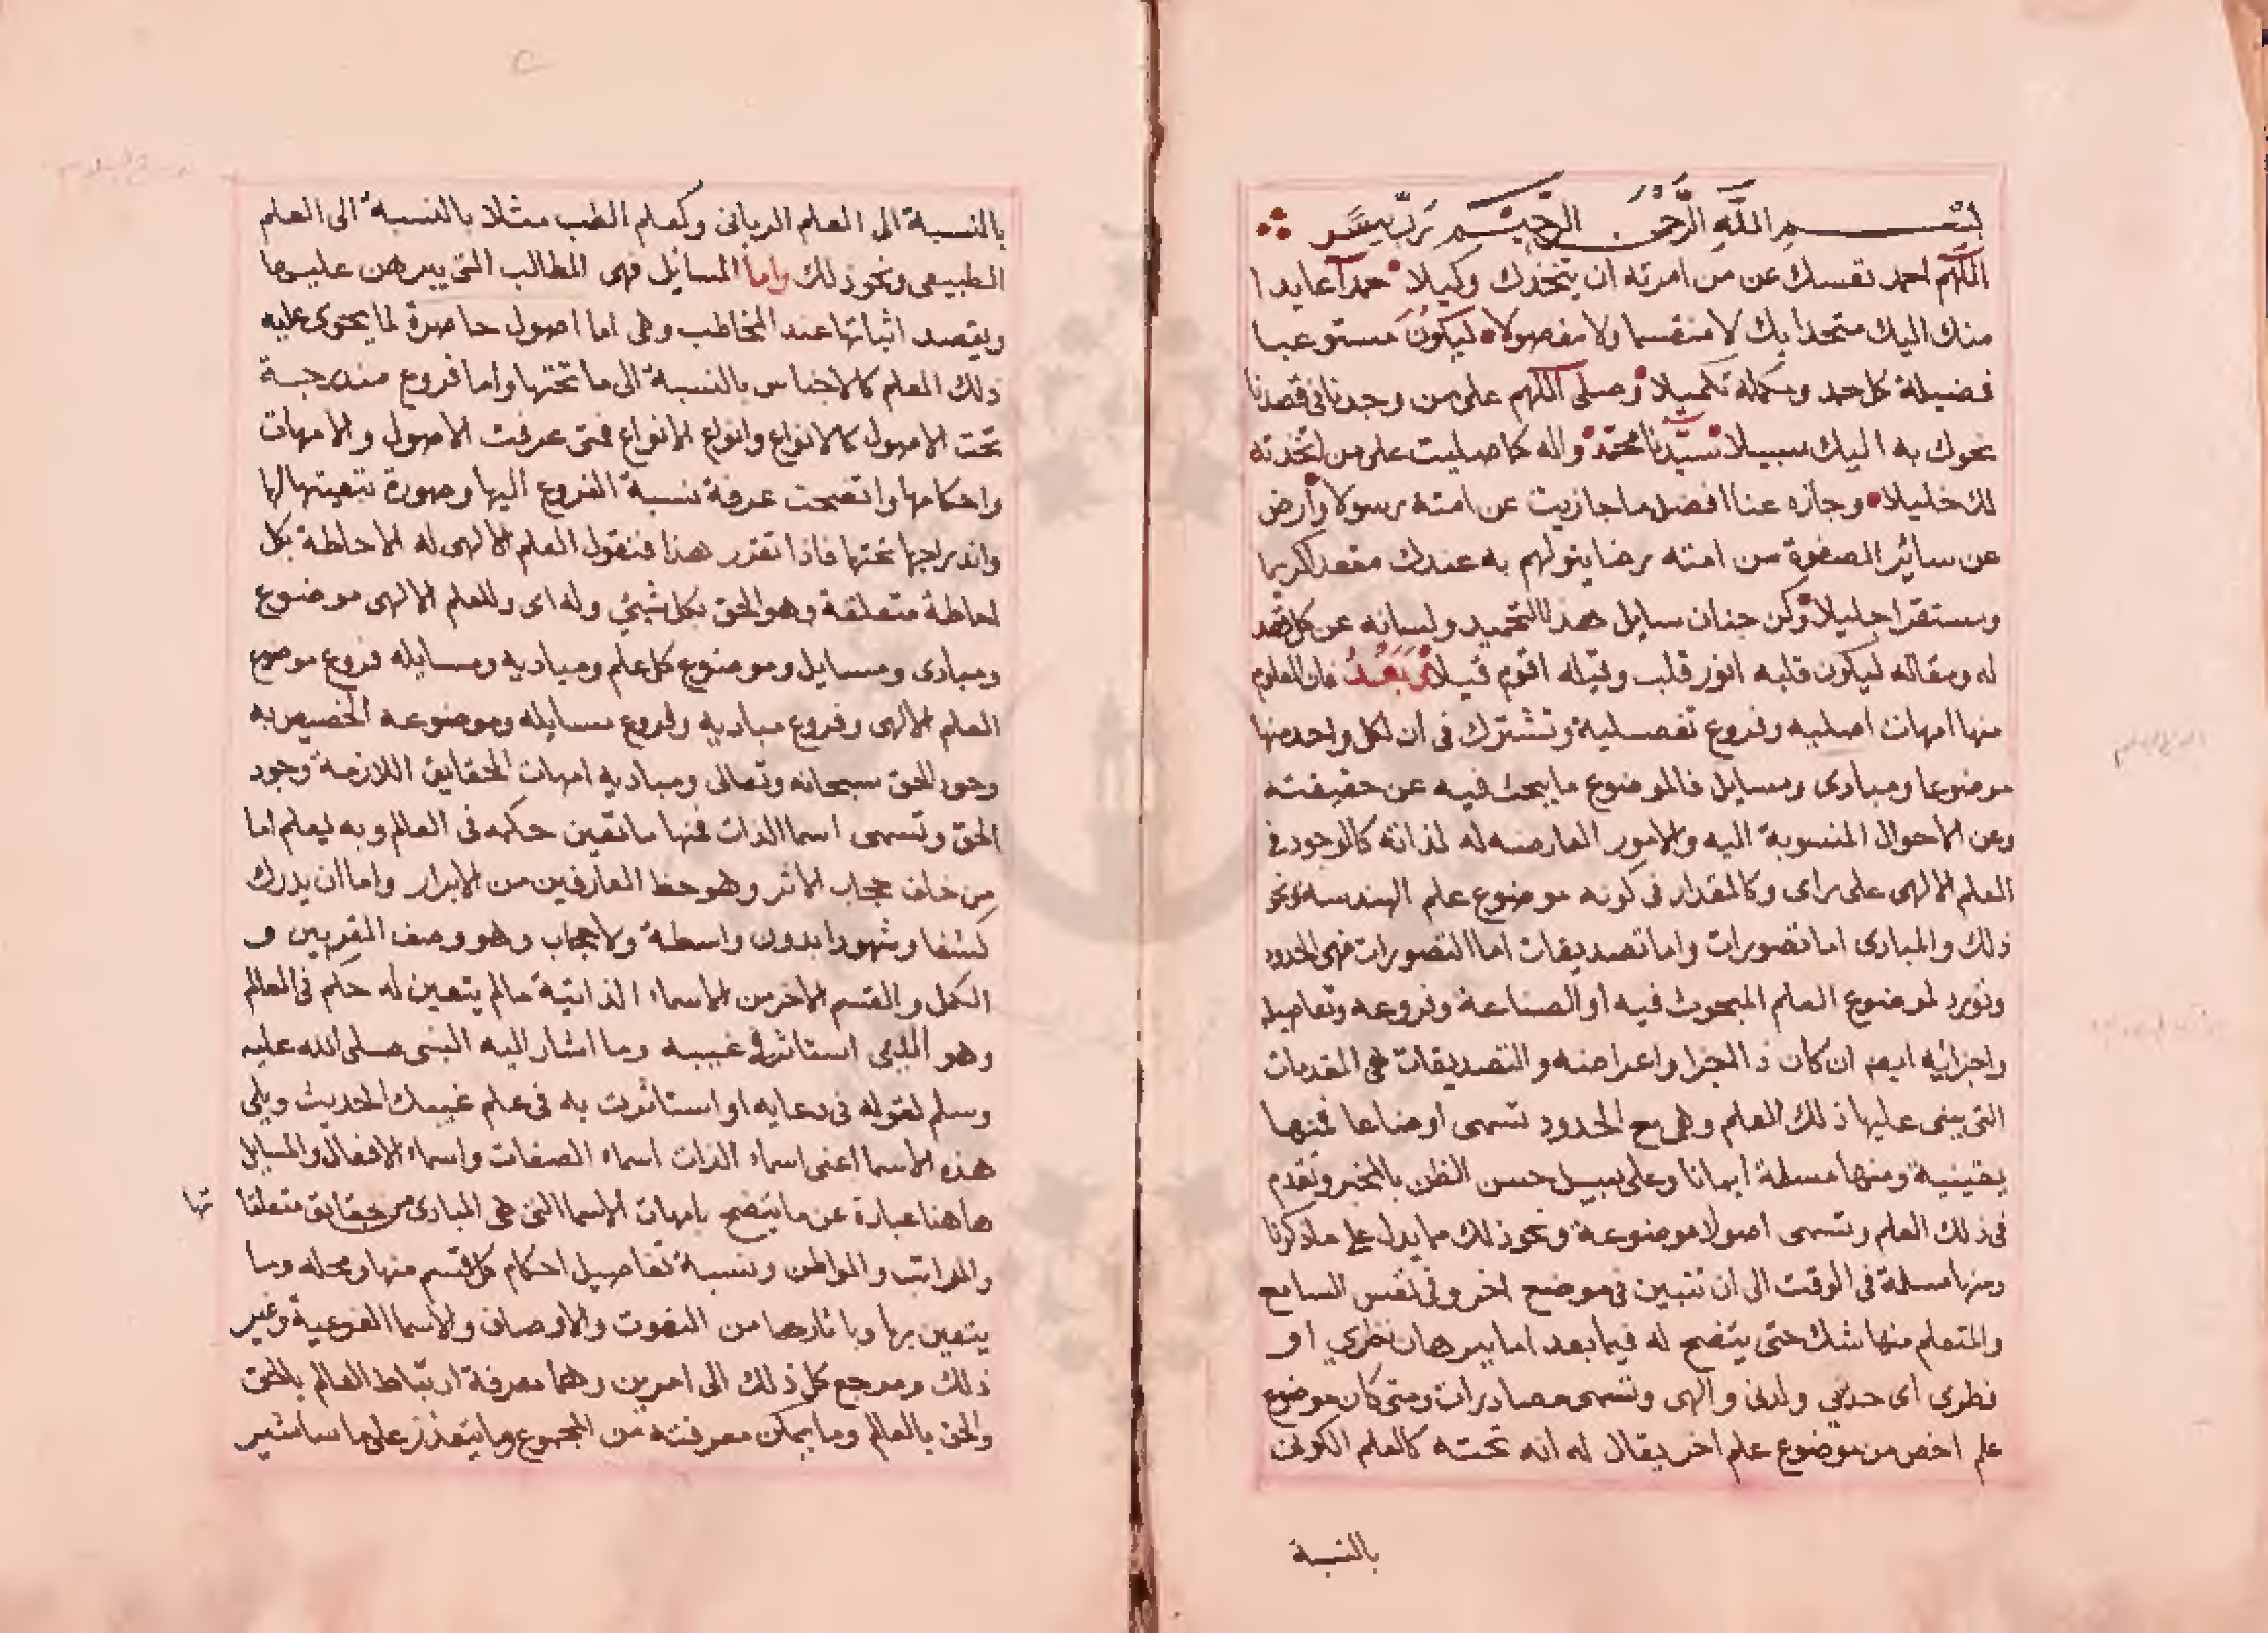 بسم الله الرحمن الرحيم رب يسر
اللهم احمد نفسك عن من امرته ان يتخذك وكيلا حمدا عايدا
منك اليك متحدا بك لا منقسما ولا مفصولا ليكون مستوعبا
فضيلة كل حمد ومكملة تكميلا وصلى اللهم على من وجدنا في قصدنا
نحوك به اليك سبيلا سيدنا محمد واله كما صليت على من اتخذته
لك خليلا وجازه عنا افضل ما جازيت عن امته رسولا وارض
عن سائر الصفوة من امته رضا ينولهم به عندك مقعدا كريما
ومستقرا جليلا وكن جنان سايل هذا التحميد ولسانه عن كل قصد
له ومقاله ليكون قلبه انور قلب وقيله اقوم قيلا وبعد فان العلوم
منها امهات اصليه وفروع تفصيلية وتشترك في ان لكل واحد منها
موضوعا ومبادى ومسايل فالموضوع ما يبحث فيه عن حقيقته
وعن الاحوال المنسوبة اليه والامور العارضه له لذاته كالوجود في
العلم الالهى على راى وكالمقدار في كونه موضوع علم الهندسه ونحو
ذلك والمبادى اما تصورات واما تصديقات اما التصورات فهى الحدود
وتورد لموضوع العلم المبحوث فيه او الصناعة وفروعه وتفاصيله
واجزائيه ايضا ان كان ذا اجزا واعراضه والتصديقات هى المقدمات
التى يبنى عليها ذلك العلم وهى مع الحدود تسمى اوضاعا فمنها
يقينية ومنها مسلمة ايمانا وعلى سبيل حسن الظن بالمخبر وتقدم
في ذلك العلم وتسمى اصولا موضوعة ونحو ذلك مما يدل على ما ذكرنا
ومنها مسلمة في الوقت الى ان تتبين في موضع اخر وفي نفس السامع
والمتعلم منها شك حتى يتضح له فيما بعد اما ببرهان نظري او
فطرى اى حدسي ولدنى والهى وتسمى مصادرات ومتى كان موضوع
علم اخص من موضوع علم اخر يقال له انه تحته كالعلم الكونى
بالنسبة
بالنسبة الى العلم الربانى وكعلم الطب مثلا بالنسبة الى العلم
الطبيعى ونحو ذلك واما المسايل فهى المطالب التى يبرهن عليها
ويقصد اثباتها عند المخاطب وهى اما اصول حاصرة لما يحوى عليه
ذلك العلم كالاجناس بالنسبة الى ما تحتها واما فروع مندرجة
تحت الاصول كالانواع وانواع الانواع فمتى عرفت الاصول والامهات
واحكامها واتضحت عرفة نسبة الفروع اليها وصورة تبعيتها لها
واندراجها تحتها فاذا تقرر هذا فنقول العلم الالهى له الاحاطة بكل
احاطة متعلقة وهو الحق بكل شيئ وله اى وللعلم الالهى موضوع
ومبادى ومسايل وموضوع كل علم ومباديه ومسايله فروع موضوع
العلم الالهى وفروع مباديه وفروع مسايله وموضوعه الخصيص به
وجود الحق سبحانه وتعالى ومباديه امهات الحقايق اللازمة وجود
الحق وتسمى اسما الذات فمنها ما تعين حكمه في العالم وبه يعلم اما
من خلف حجاب الاثر وهو حظ العارفين من الابرار واما ان يدرك
كشفا وشهودا بدون واسطة ولا حجاب وهو وصف المقربين و
الكمل والقسم الاخر من الاسماء الذاتية ما لم يتعين له حكم في العالم
وهو الذي استاثر في غيبه وما اشار اليه النبى صلى الله عليه
وسلم لقوله فى دعايه او استاثرت به فى علم غيبك الحديث ويلى
هذه الاسما اعنى اسماء الذات اسماء الصفات واسماء الافعال والمسايل
هاهنا عبارة عن ما يتضح بامهات الاسما التى هى المبادى من حقايق متعلقا تها
والمراتب والمواطن ونسبة تفاصيل احكام كل قسم منها ومحله وما
يتعين بها وباثارها من النعوت والاوصاف والاسما الفرعية وغير
ذلك ومرجع كل ذلك الى امرين وهما معرفة ارتباط العالم بالحق
والحق بالعالم وما يمكن معرفته من المجموع وما يتعذر على ما ساشير